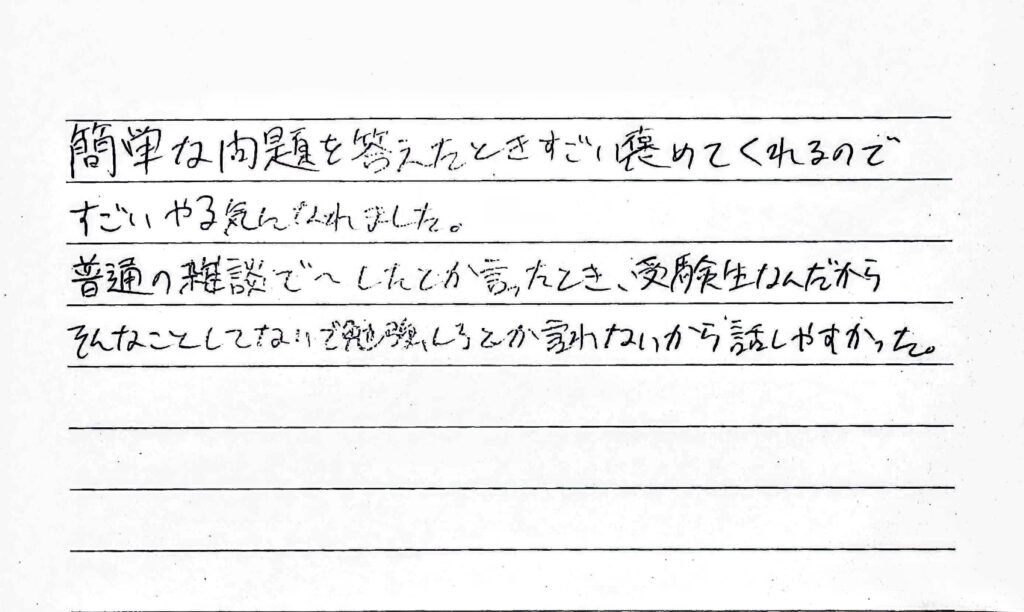 簡単な問題を答えたときすごい褒めてくれるので
すごいやる気になれました。
普通の雑談で〜したとか言ったとき、受験生なんだから
そんなことしてないで勉強しろとか言われないから話しやすかった。